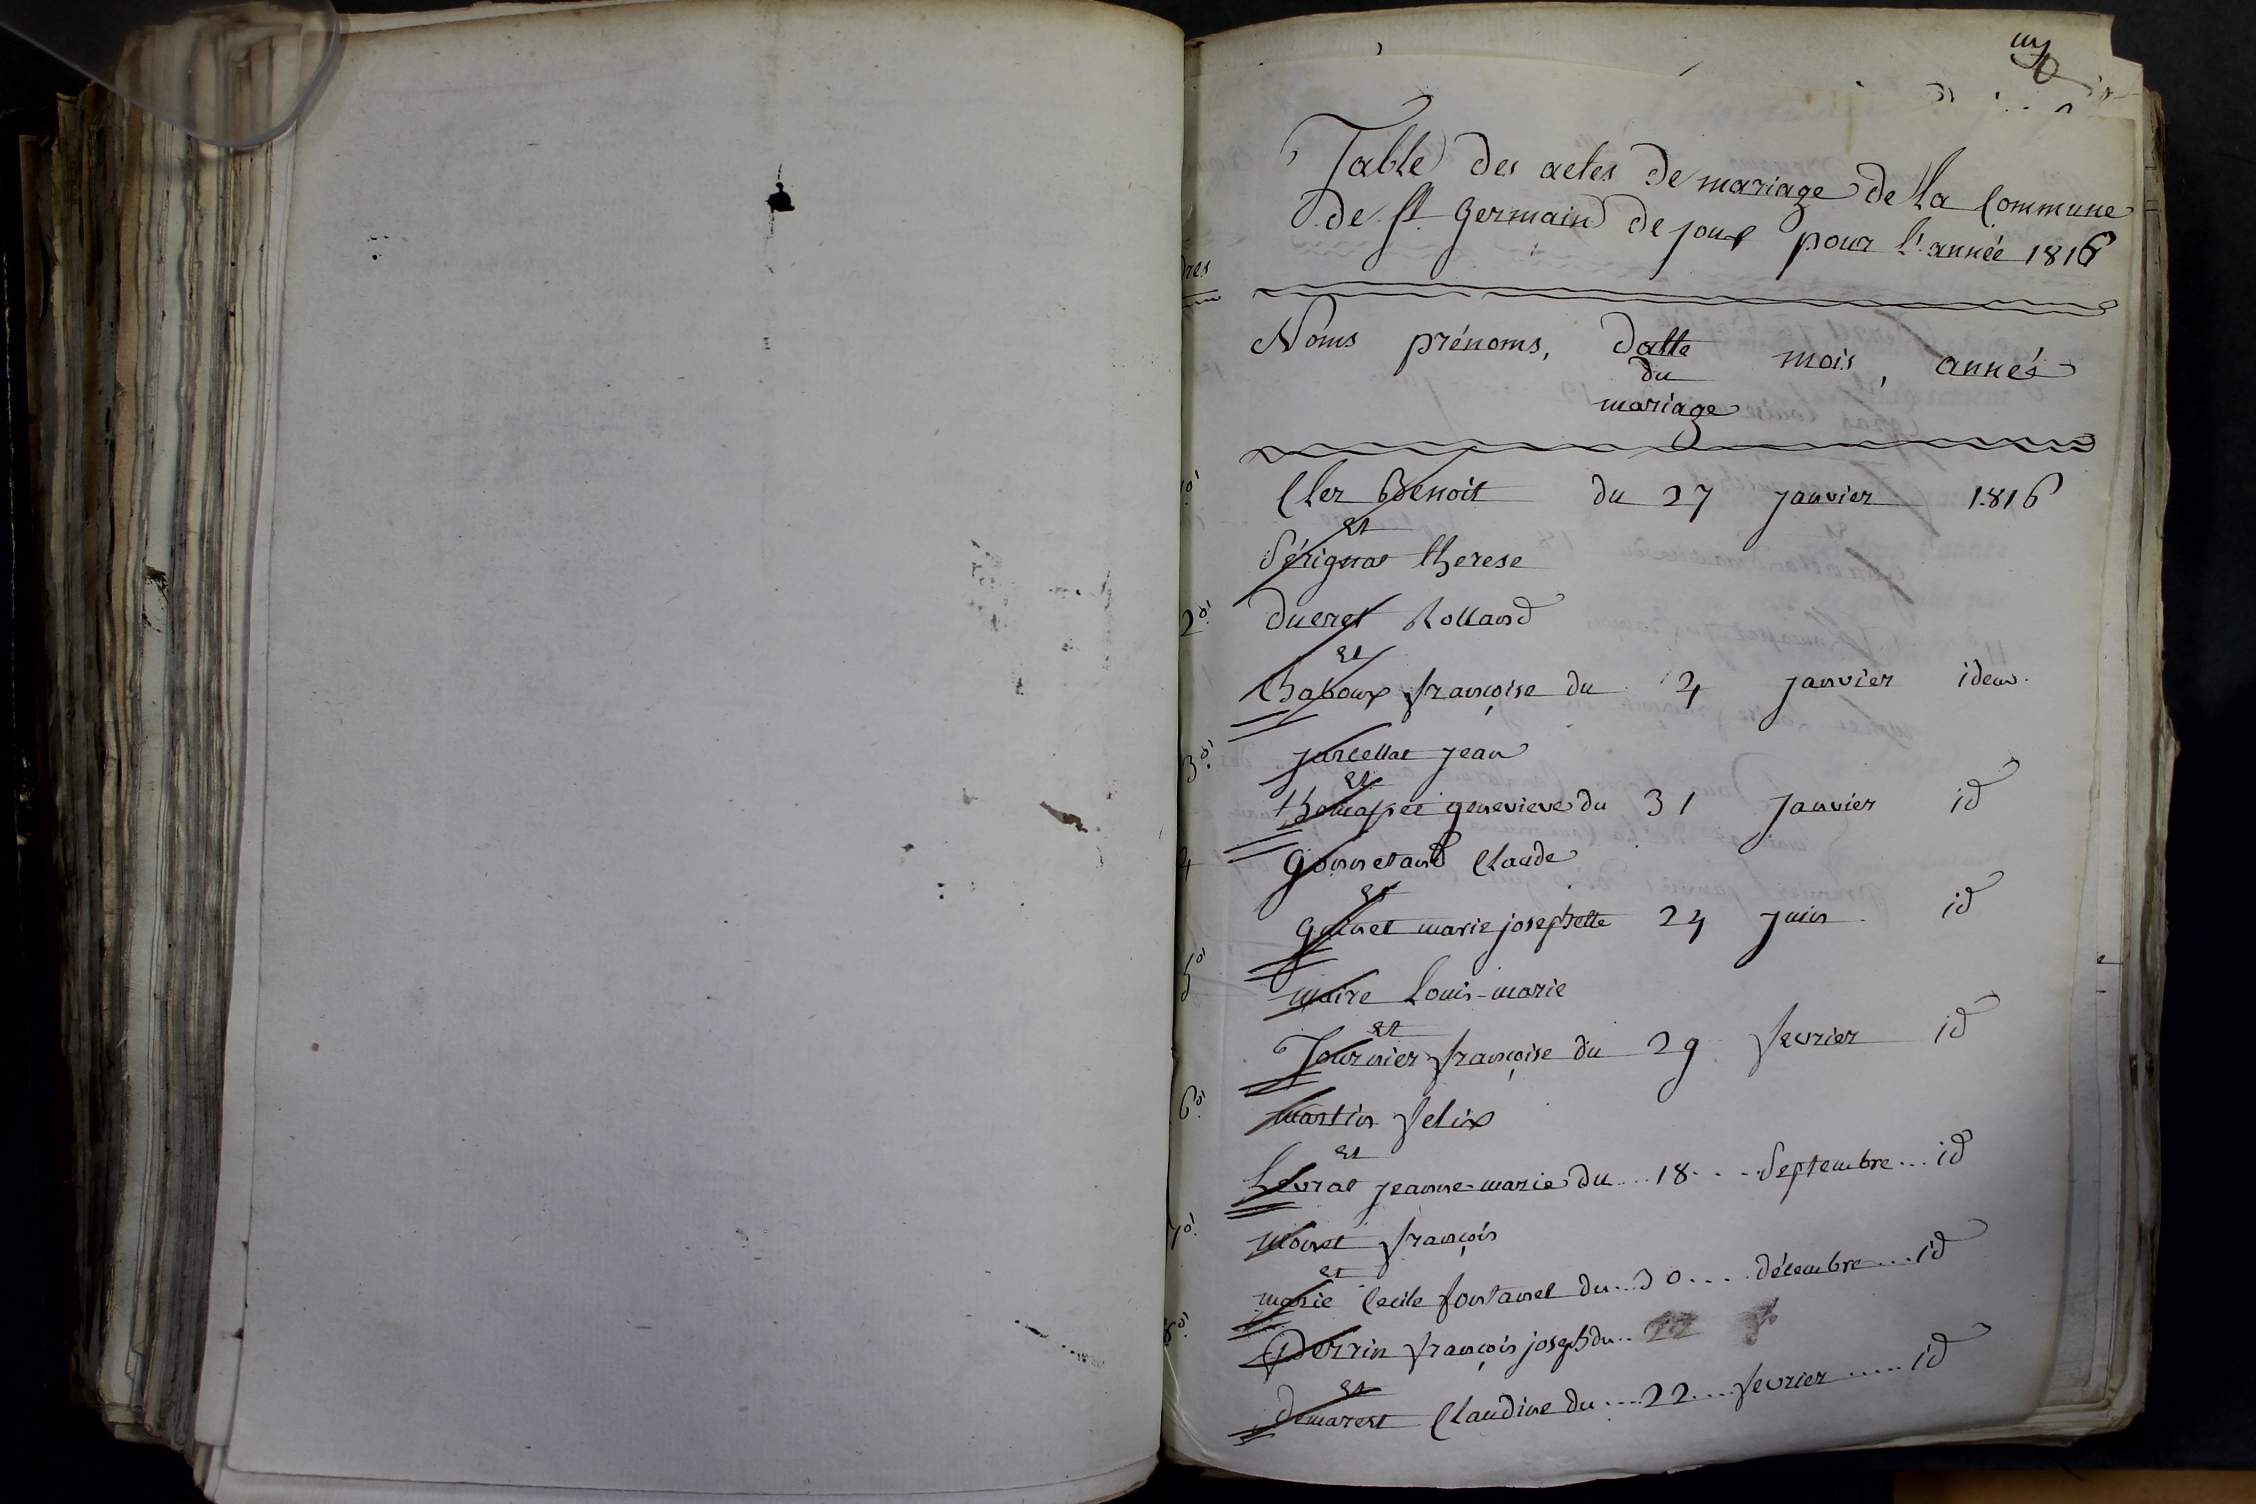 Table des actes de mariage de la Commune
de St Germain de joux pour l'année 1816
Noms prénoms, datte mois, année
du
mariage
Cler Benoit du 27 janvier 1816
et
Sérignat therese
2º
ducret Rolland
et
Chaboux françoise du 4 janvier idem
3º
jarcellat jean
et
genevieve du 31 janvier id
4
gonnetand Claude
et
marie josephette 24 juin id
5º
maire Louis-marie
et
Tournier françoise du 29 fevrier id
6º
martin felix
et
Levrat jeanne-marie du...18....Septembre...id
7º
monet françois
et
marie Cecile fontanel du..30....décembre...id
8º
perrin françois joseph du.. 22
et
demarest Claudine du....22....fevrier.....id